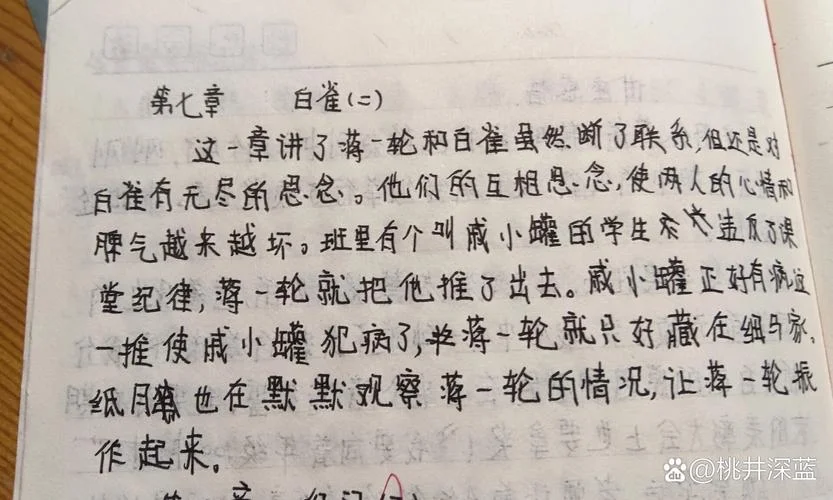 第七章 白雀(二)
这一章讲了蒋一轮和白雀虽然断了联系,但还是对
白雀有无尽的思念。他们的互相思念,使两人的心情和
脾气越来越坏。班里有个叫戚小罐的学生 违反了课
堂纪律,蒋一轮就把他推了出去。戚小罐正好有病,这
一推使戚小罐犯病了,蒋一轮就只好藏在细马家,
纸月 也在默默观察蒋一轮的情况,让蒋一轮振
作起来。
@桃井深蓝